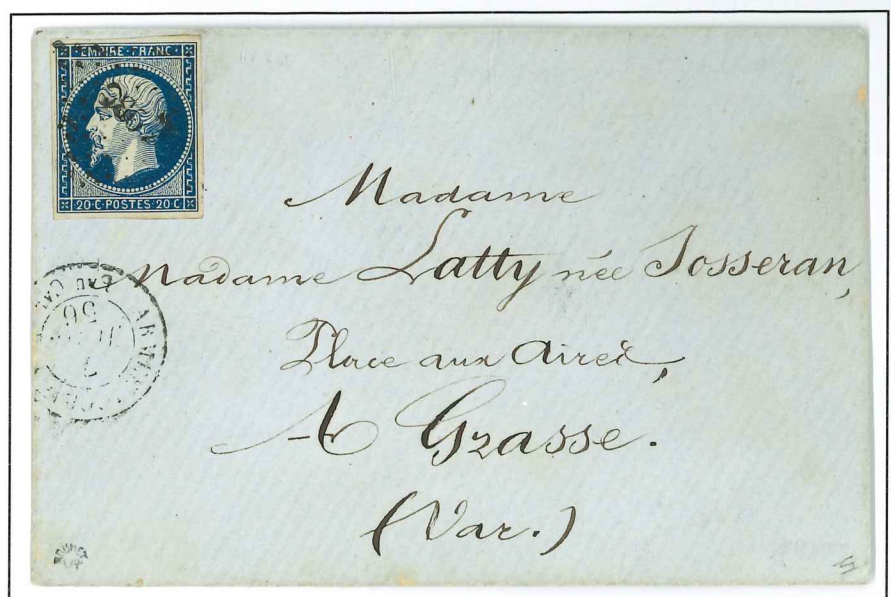 EMPIRE FRANC
20 C POSTES 20 C
Madame
Madame Latty née Josseran,
Place aux Aires,
A Grasse.
(Var.)
56
7